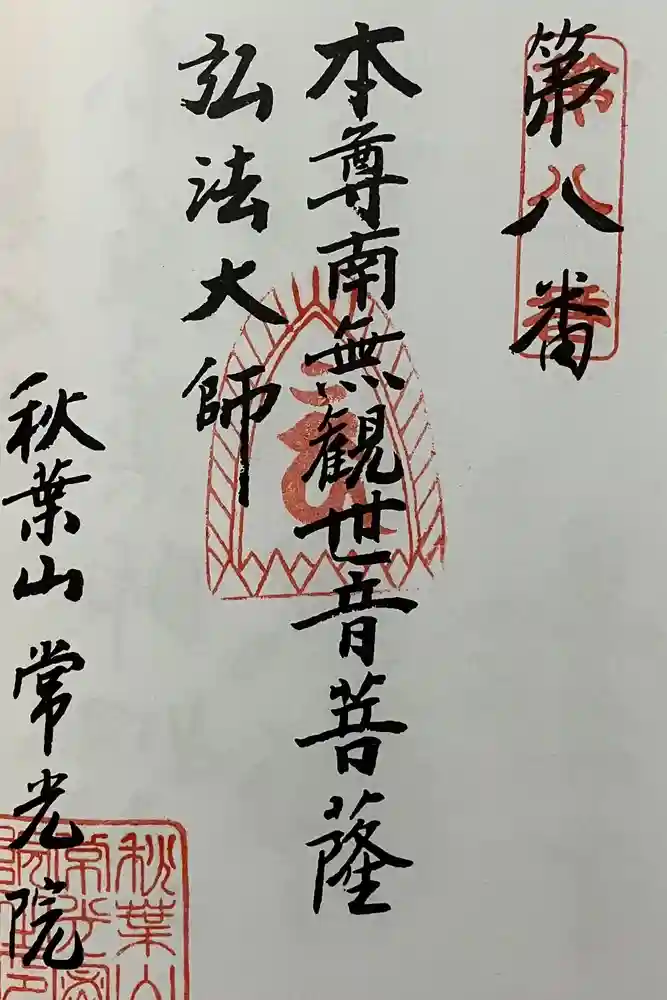 第八番
本尊南無観世音菩薩
弘法大師
秋葉山 常光院
第八番
秋葉山
常光院